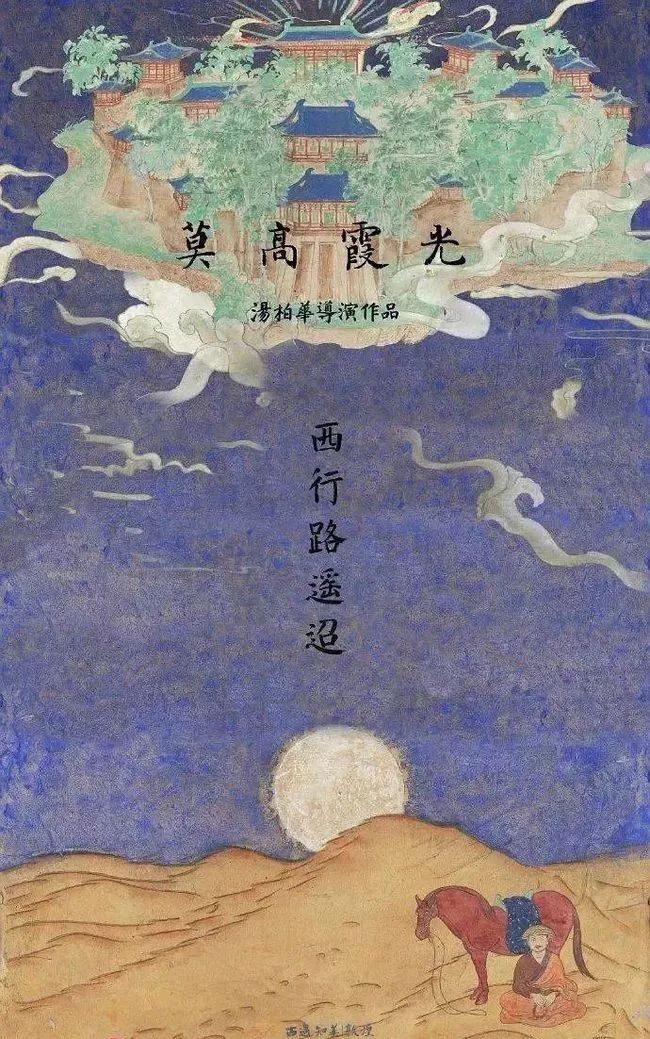 莫高霞光
湯柏華導演作品
西行路遥迢
西遇知美敦煌